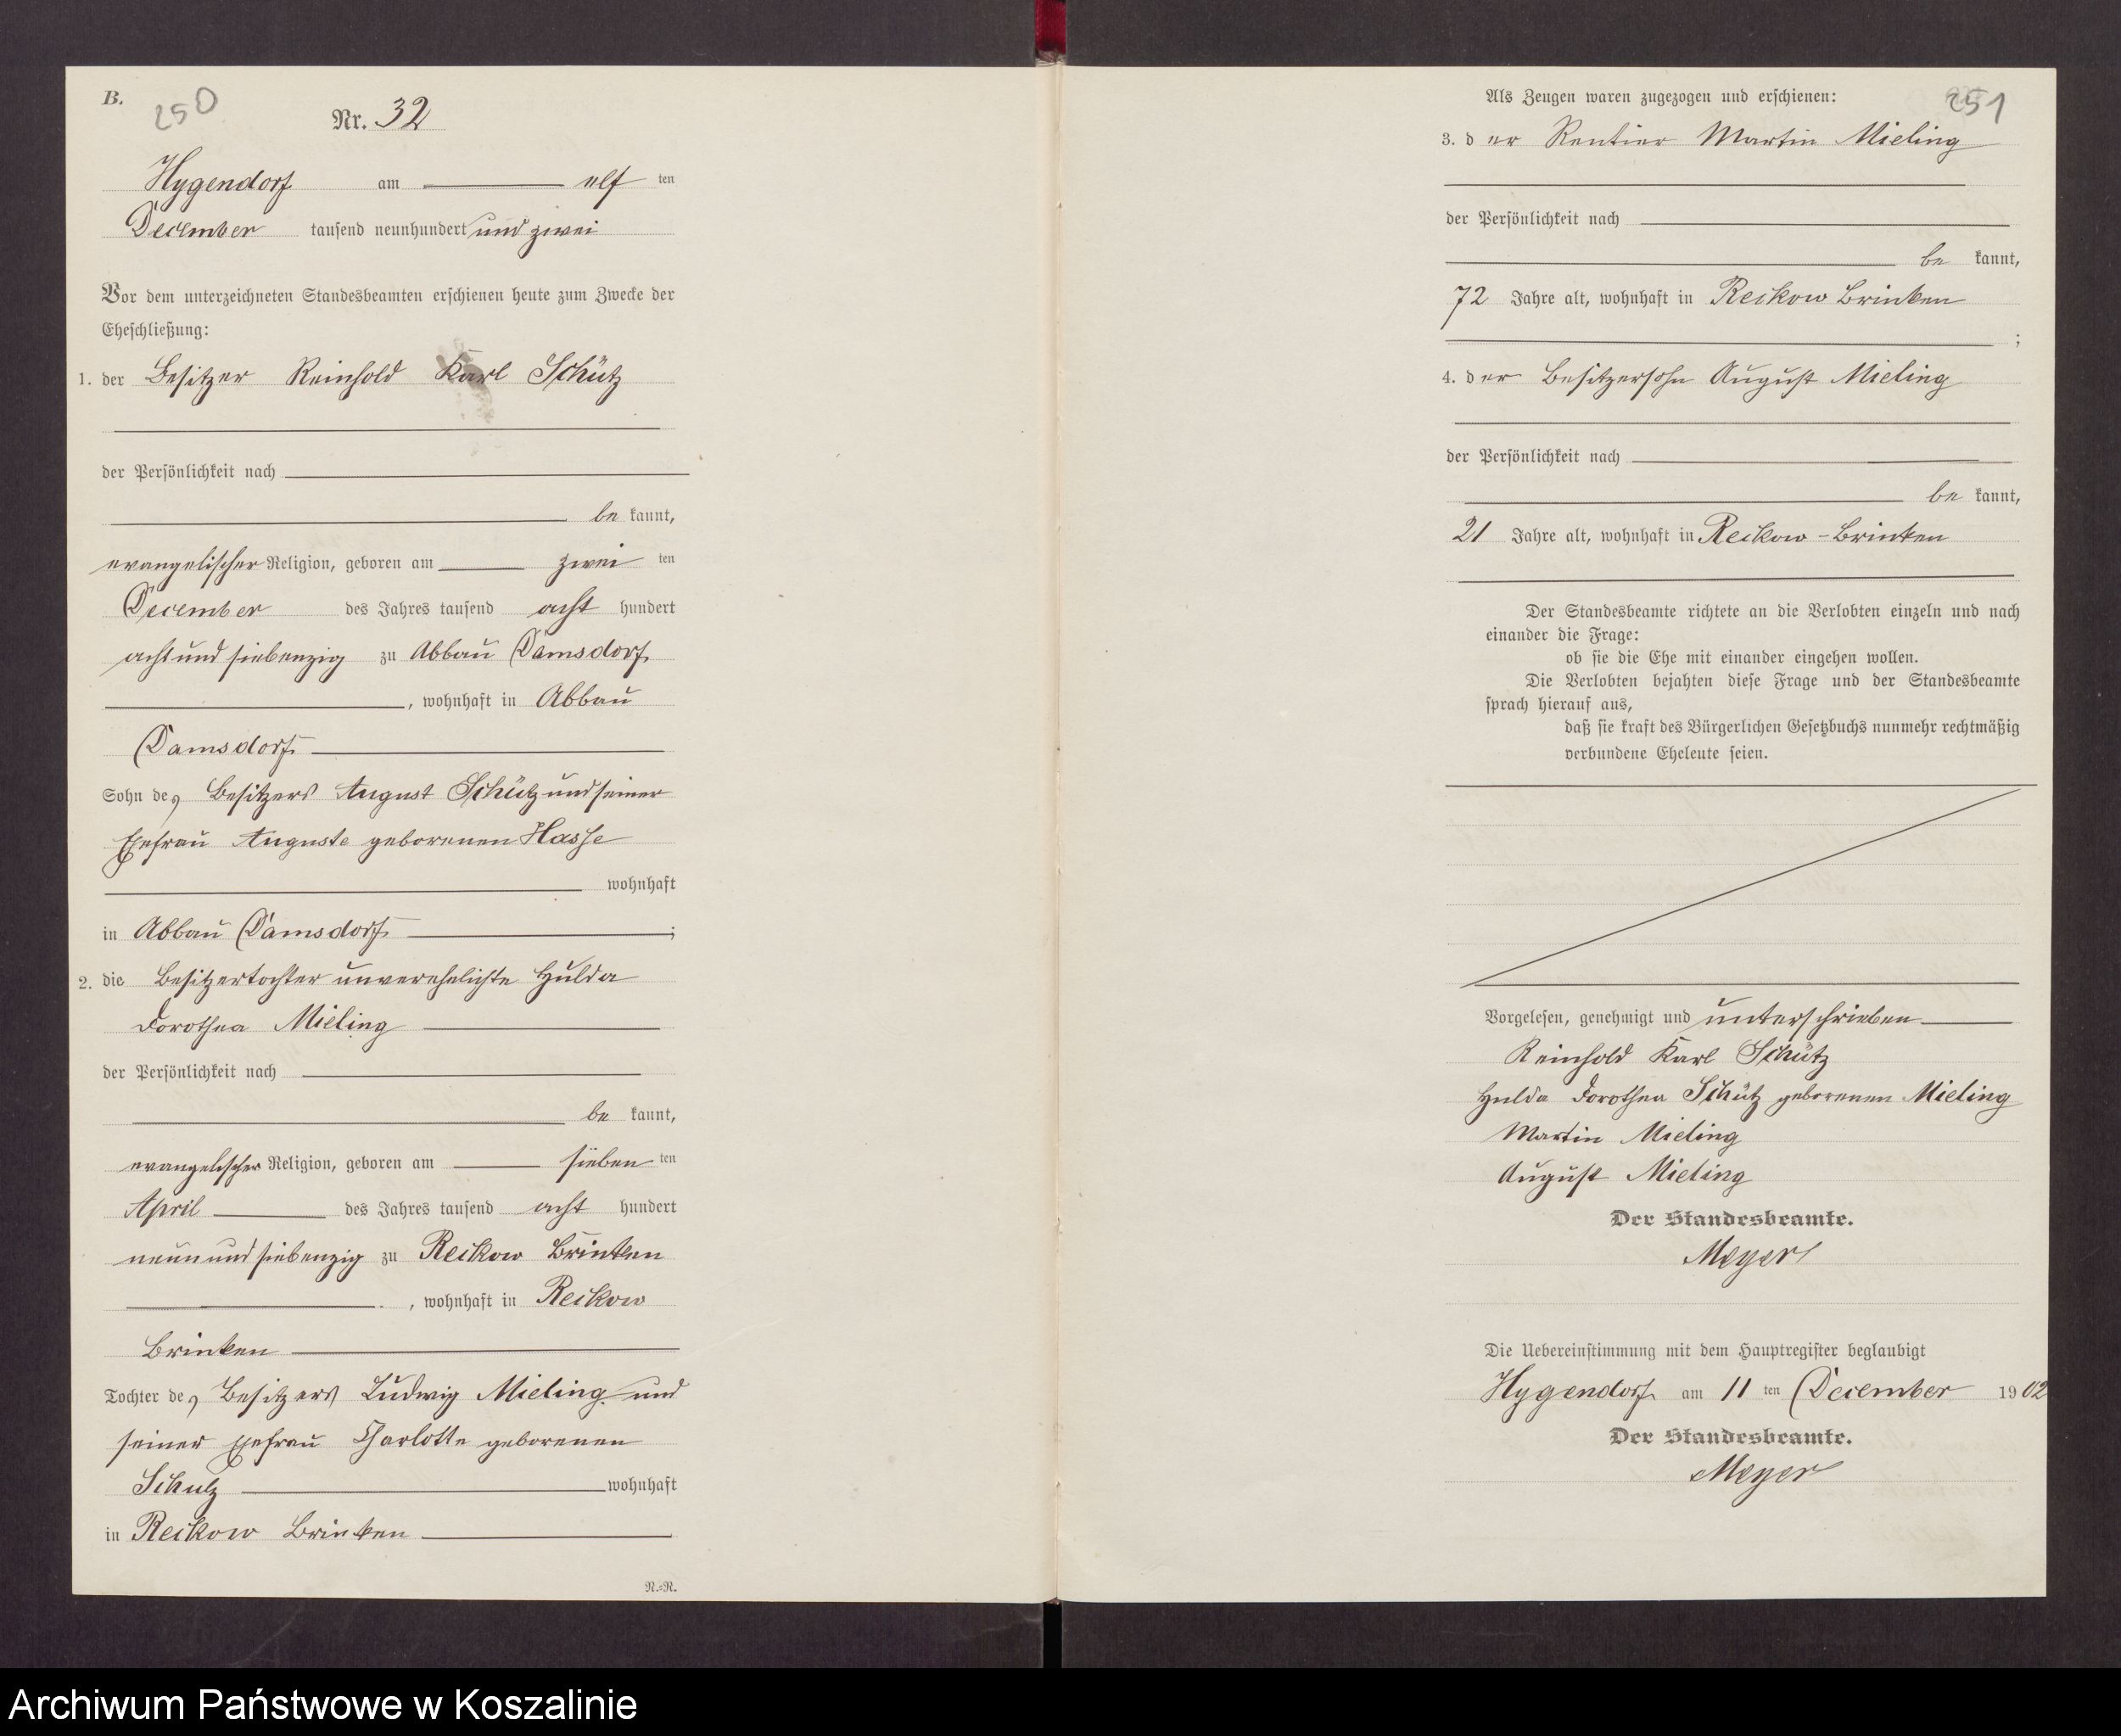 B.
250
Nr. 32
Hygendorf am elf ten
December tausend neunhundert und zwei
Vor dem unterzeichneten Standesbeamten erschienen heute zum Zwecke der
Eheschließung:
1. der Besitzer Reinhold Karl Schütz
der Persönlichkeit nach
be kannt,
evangelischer Religion, geboren am zwei ten
December des Jahres tausend acht hundert
acht und siebenzig zu Abbau Damsdorf
, wohnhaft in Abbau
Damsdorf
Sohn des Besitzers August Schütz und seiner
Ehefrau Auguste geborenen Hasse
wohnhaft
in Abbau Damsdorf ;
2. die Besitzertochter unverehelichte Hulda
Dorothea Mieling
der Persönlichkeit nach
be kannt,
evangelischer Religion, geboren am sieben ten
April des Jahres tausend acht hundert
neun und siebenzig zu Reckow Brinken
, wohnhaft in Reckow
Brinken
Tochter des Besitzers Ludwig Mieling und
seiner Ehefrau Charlotte geborenen
Schulz wohnhaft
in Reckow Brinken
N.=N.
251
Als Zeugen waren zugezogen und erschienen:
3. d er Rentier Martin Mieling
der Persönlichkeit nach
be kannt,
72 Jahre alt, wohnhaft in Reckow Brinken
;
4. d er Besitzersohn August Mieling
der Persönlichkeit nach
be kannt,
21 Jahre alt, wohnhaft in Reckow-Brinken
Der Standesbeamte richtete an die Verlobten einzeln und nach
einander die Frage:
ob sie die Ehe mit einander eingehen wollen.
Die Verlobten bejahten diese Frage und der Standesbeamte
sprach hierauf aus,
daß sie kraft des Bürgerlichen Gesetzbuchs nunmehr rechtmäßig
verbundene Eheleute seien.
Vorgelesen, genehmigt und unterschrieben
Reinhold Karl Schütz
Hulda Dorothea Schütz geborenen Mieling
Martin Mieling
August Mieling
Der Standesbeamte.
Meyer
Die Uebereinstimmung mit dem Hauptregister beglaubigt
Hygendorf am 11 ten December 1902
Der Standesbeamte.
Meyer
Archiwum Państwowe w Koszalinie